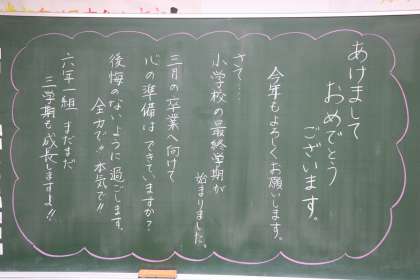 あけまして
おめでとう
ございます。
今年もよろしくお願いします。
さて…
小学校の最終学期が
始まりました。
三月の卒業へ向けて
心の準備はできていますか?
後悔のないように過ごします。
全力で!!本気で!!
六年一組 まだまだ
三学期も成長しますよ!!